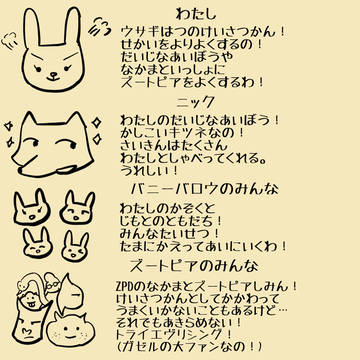 わたし
ウサギはつのけいさつかん！
せかいをよりよくするの！
だいじなあいぼうや
なかまといっしょに
ズートピアをよくするわ！
ニック
わたしのだいじなあいぼう！
かしこいキツネなの！
さいきんはたくさん
わたしとしゃべってくれる。
うれしい！
バニーバロウのみんな
わたしのかぞくと
じもとのともだち！
みんなたいせつ！
たまにかえってあいにいくわ！
ズートピアのみんな
ZPDのなかまとズートピアしみん！
けいさつかんとしてかかわって
うまくいかないこともあるけど…
それでもあきらめない！
トライエヴリシング！
(ガゼルの大ファンなの！)